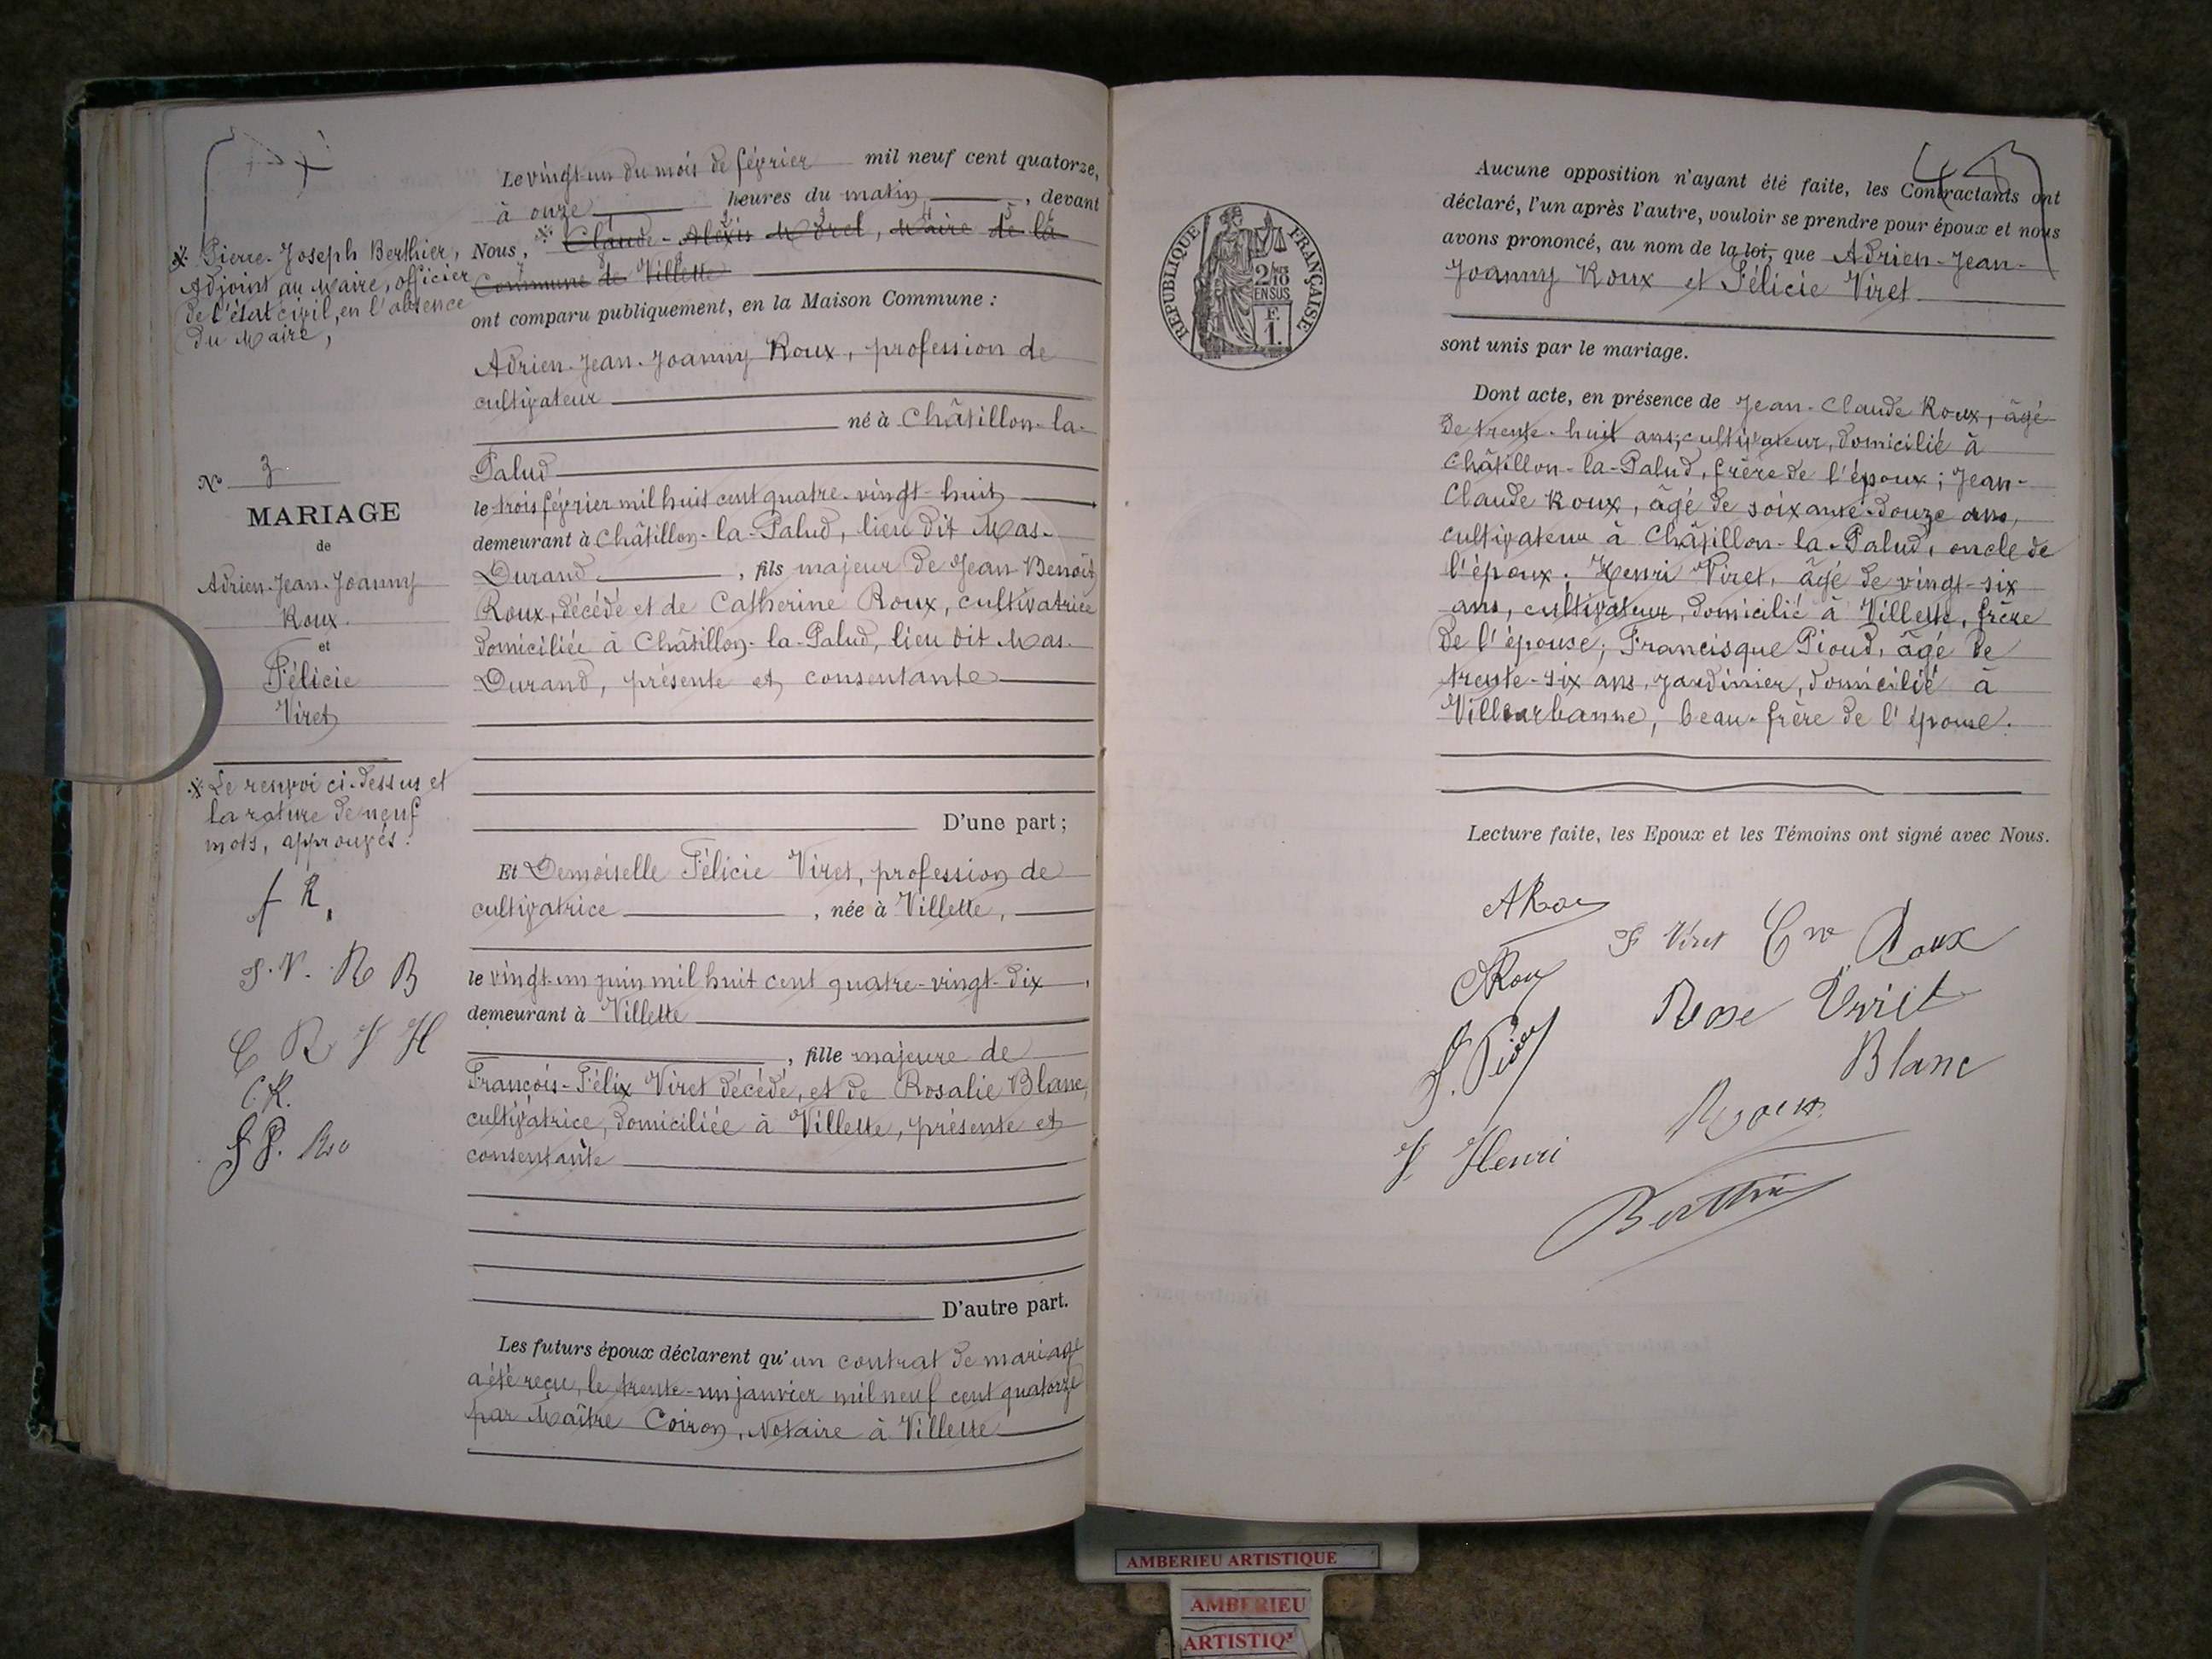 Le vingt-un du mois de février mil neuf cent quatorze,
à onze heures du matin, devant
Nous, * Claude-Alexis Morel, Maire de la
Commune de Villette
ont comparu publiquement, en la Maison Commune :
Adrien-Jean-Joanny Roux, profession de
cultivateur
né à Châtillon-la-
Palud
le trois février mil huit cent quatre-vingt-huit
demeurant à Châtillon-la-Palud, lieu dit Mas-
Durand, fils majeur de Jean Benoît
Roux, décédé et de Catherine Roux, cultivatrice
domiciliée à Châtillon-la-Palud, lieu dit Mas-
Durand, présente et consentante
D'une part ;
Et Demoiselle Félicie Viret, profession de
cultivatrice, née à Villette,
le vingt-un juin mil huit cent quatre-vingt-dix,
demeurant à Villette
, fille majeure de
François-Félix Viret décédé, et de Rosalie Blanc,
cultivatrice, domiciliée à Villette, présente et
consentante
D'autre part.
Les futurs époux déclarent qu'un contrat de mariage
a été reçu, le trente-un janvier mil neuf cent quatorze
par Maître Coiron, Notaire à Villette
* Pierre-Joseph Berthier,
Adjoint au Maire, officier
de l'état civil, en l'absence
du Maire,
N° 3
MARIAGE
de
Adrien-Jean-Joanny
Roux
et
Félicie
Viret
* Le renvoi ci-dessus et
la rature de neuf
mots, approuvés.
F. V. R B
C R V H
C. R.
RÉPUBLIQUE FRANÇAISE
2/10
EN SUS
F.
1.
Aucune opposition n'ayant été faite, les Contractants ont
déclaré, l'un après l'autre, vouloir se prendre pour époux et nous
avons prononcé, au nom de la loi, que Adrien-Jean-
Joanny Roux et Félicie Viret
sont unis par le mariage.
Dont acte, en présence de Jean-Claude Roux, âgé
de trente-huit ans, cultivateur, domicilié à
Châtillon-la-Palud, frère de l'époux ; Jean-
Claude Roux, âgé de soixante-douze ans,
cultivateur à Châtillon-la-Palud, oncle de
l'époux ; Henri Viret, âgé de vingt-six
ans, cultivateur, domicilié à Villette, frère
de l'épouse ; Francisque Pioud, âgé de
trente-six ans, jardinier, domicilié à
Villeurbanne, beau-frère de l'épouse.
Lecture faite, les Epoux et les Témoins ont signé avec Nous.
A Roux
F Viret Cne Roux
C Roux
Rose Viret
Blanc
V Henri
Roux
Berthier
AMBERIEU ARTISTIQUE
AMBERIEU
ARTISTIQ